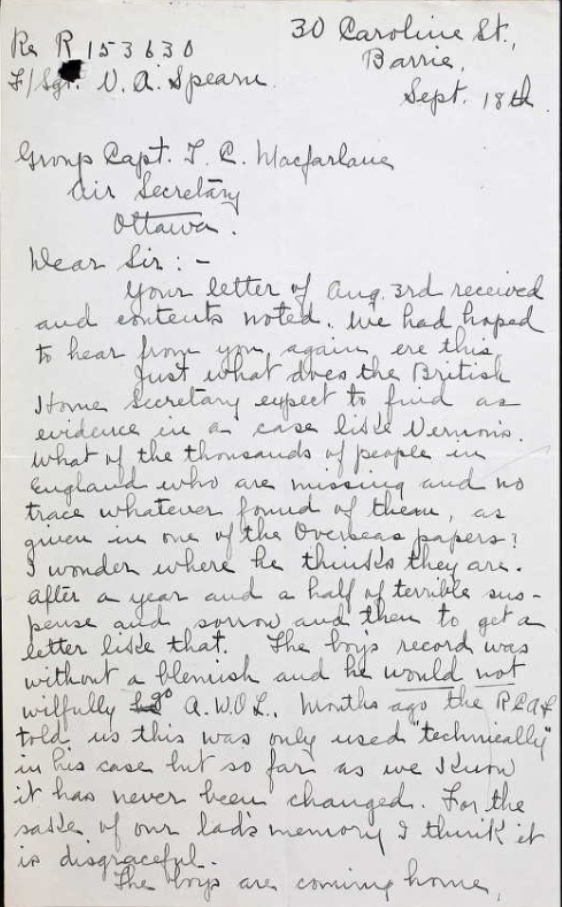 30 Caroline St.,
Re R 153630
Barrie,
F/Sgt. V. A. Spearn.
Sept. 18th.
Group Capt. T. C. Macfarlane
Air Secretary
Ottawa.
Dear Sir: -
Your letter of Aug. 3rd received
and contents noted. We had hoped
to hear from you again ere this.
Just what does the British
Home Secretary expect to find as
evidence in a case like Vernon's.
What of the thousands of people in
England who are missing and no
trace whatever found of them, as
given in one of the Overseas papers?
I wonder where he thinks they are.
After a year and a half of terrible sus-
pense and sorrow and then to get a
letter like that. The boys record was
without a blemish and he would not
wilfully go A.W.O.L. Months ago the RCAF
told us this was only used "technically"
in his case but so far as we know
it has never been changed. For the
sake of our lad's memory I think it
is disgraceful.
The boys are coming home,